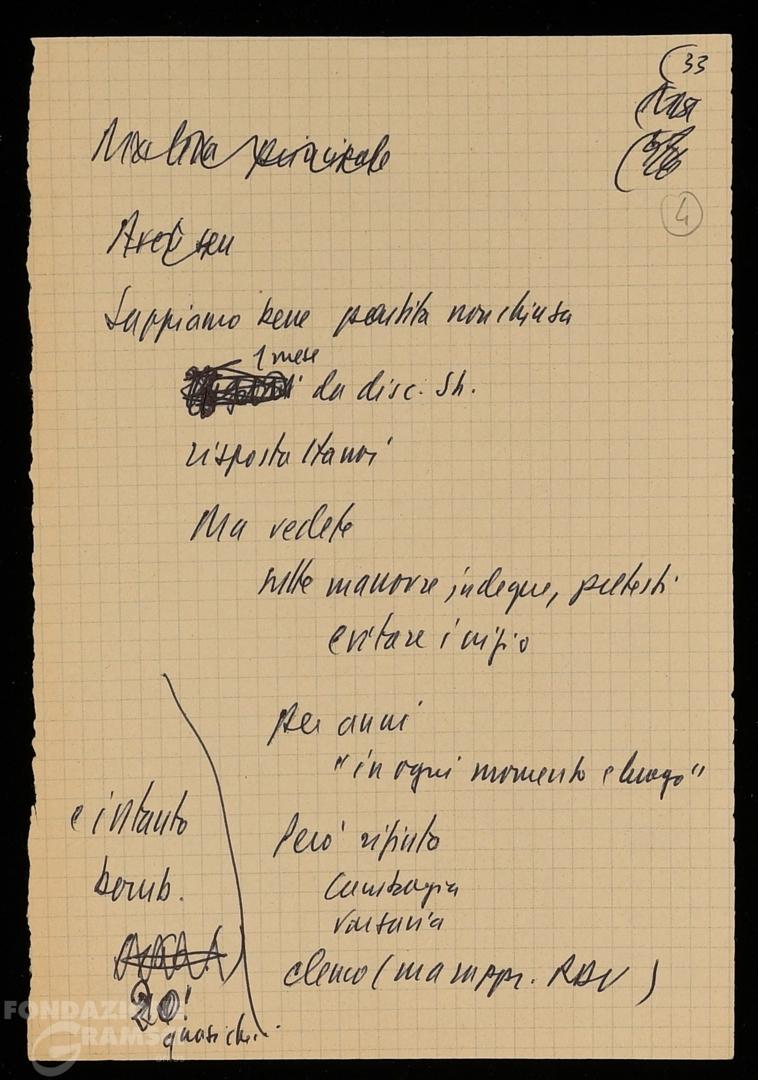 (33
4
Sappiamo bene partita non chiusa
1 mese
da disc. Sh.
risposta Hanoi
Ma vedete
sulle manovre indegne, pretesti
evitare inizio
per anni
"in ogni momento e luogo"
Però rifiuto
Cambogia
Varsavia
elenco (ma rappr. RDV)
e intanto
bomb.
20!
quasi ch...
FONDAZIONE
GRAMSCI